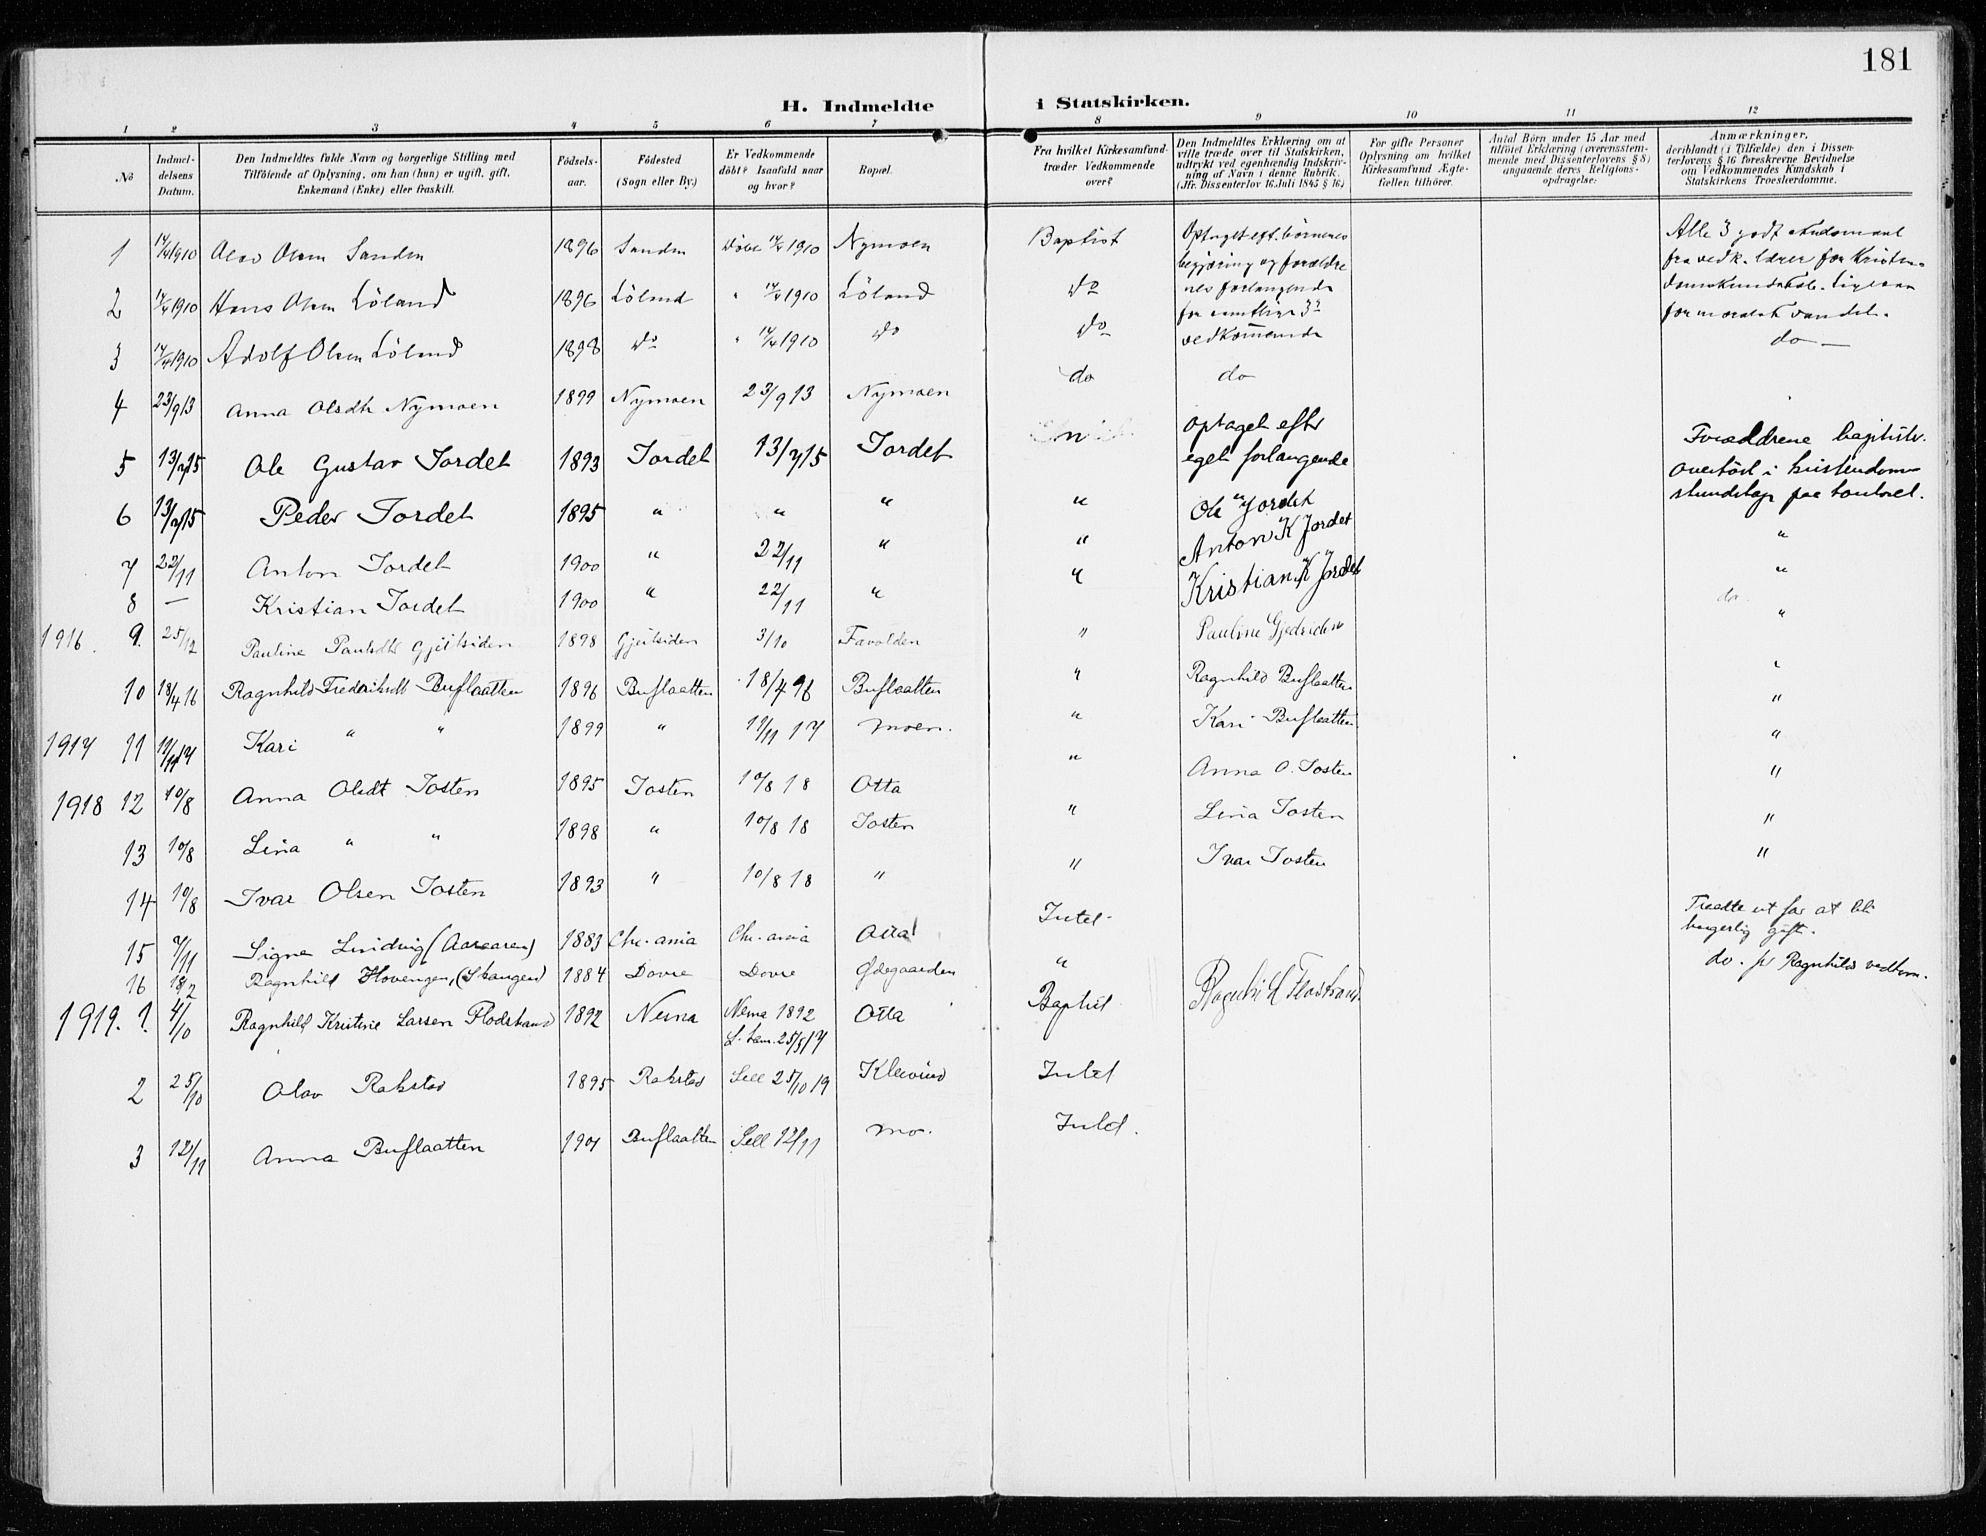 181
H. Indmeldte i Statskirken.
1 2 3 4 5 6 7 8 9 10 11 12
No
Indmeldelsens Datum.
Den Indmeldtes fulde Navn og borgerlige Stilling med
Tilföiende af Oplysning, om han (hun) er ugift, gift,
Enkemand (Enke) eller fraskilt.
Födselsaar.
Födested
(Sogn eller By.)
Er Vedkommende
döbt? Isaafald naar
og hvor?
Bopæl.
Fra hvilket Kirkesamfund
træder Vedkommende
over?
Den Indmeldtes Erklæring om at
ville træde over til Statskirken,
udtrykt ved egenhændig Indskrivning
af Navn i denne Rubrik.
(Jfr. Dissenterlov 16. Juli 1845 § 16.)
For gifte Personer
Oplysning om hvilket
Kirkesamfund Ægtefællen
tilhörer.
Antal Börn under 15 Aar med
tilföiet Erklæring (overensstemmende
med Dissenterlovens § 8)
angaaende deres Religionsopdragelse.
Anmærkninger,
deriblandt (i Tilfælde) den i Dissenterlovens
§ 16 foreskrevne Bevidnelse
om Vedkommendes Kundskab i
Statskirkens Troeslærdomme.
1 17/4 1910 Olav Olsen Sanden 1896 Sanden Döbt 17/4 1910 Nymoen Baptist Optaget eft. börnenes begjæring og forældrenes forlangende for samtlige 3 vedkommende
Alle 3 godt
fra vedk. lærer for Kristendomskundskab.
2 17/4 1910 Hans Olsen Löland 1896 Löland " 17/4 1910 Löland Do
3 17/4 1910 Adolf Olsen Löland 1898 Do " 17/4 1910 Do Do do —
4 23/9 13 Anna Olsdtr Nymoen 1899 Nymoen 23/9 13 Nymoen do do
5 13/7 15 Ole Gustav Jordet 1893 Jordet 13/7 15 Jordet optaget efter eget forlangende
Forældrene baptister.
6 13/7 15 Peder Jordet 1895 " " " " Ole Jordet
7 22/11 Anton Jordet 1900 " 22/11 " " Anton K Jordet "
8 — Kristian Jordet 1900 " 22/11 " " Kristian K Jordet "
do.
1916. 9. 25/12 Pauline Paulsdtr Gjeitsiden 1898 Gjeitsiden 3/10 Favolden " Pauline "
10 18/4 16 Ragnhild Frederiksdt Buflaatten 1896 Buflaatten 18/4 96 Buflaatten " Ragnhild Buflaatten "
1917 11 19/11 17 Kari " " 1899 " 19/11 17 Moen. " Kari Buflaatten "
1918 12 10/8 Anna Olsdt Josten 1895 Josten 10/8 18 Otta " Anna O. Josten "
13 10/8 Lina " " 1898 " 10/8 18 Josten " Lina Josten "
14 10/8 Ivar Olsen Josten 1893 " 10/8 18 " " Ivar Josten "
15 7/11 Signe Lindvig 1883 Chr.ania Chr.ania Otta Intet Traadte ut for at bli borgerlig gift.
16 18/2 Ragnhild Hovengen, 1884 Dovre Dovre Ødegaarden " do. for Ragnhilds vedkom.
1919. 1. 4/10 Ragnhild Kristine Larsen Flodstrand 1892 Nesna Nesna 1892 Otta Baptist Ragnhild Flostrand
2 25/10 Olav Rakstad 1895 Rakstad Sell 25/10 19 Intet
3 12/11 Anna Buflaatten 1901 Buflaatten Sell 12/11 Mo. Intet.